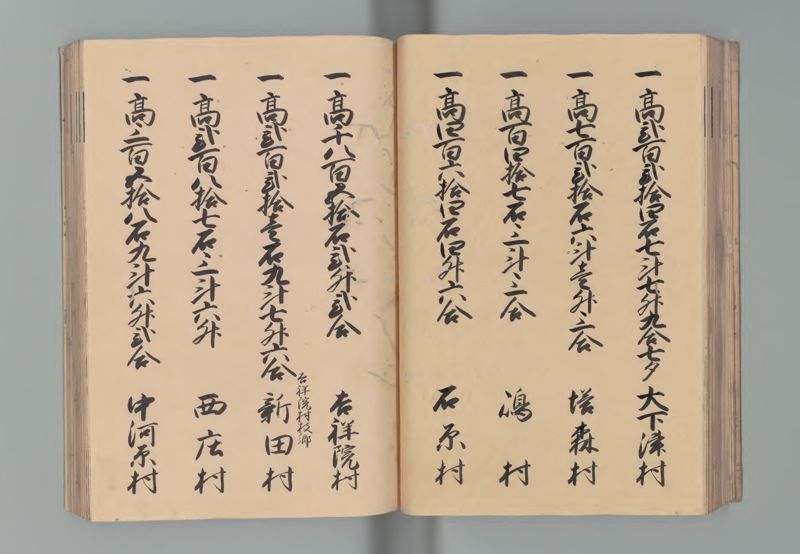 一高弐百弐拾四石七斗七升九合七夕 大下津村
一高七百弐拾石六斗壱升三合 塔森村
一高百四拾七石三斗三合 嶋村
一高四百六拾四石四升六合 石原村
一高千八百五拾石弐升弐合 吉祥院村
一高弐百弐拾壱石九斗七升六合 吉祥院村枝郷 新田村
一高弐百八拾七石三斗六升 西庄村
一高三百五拾八石九斗六升弐合 中河原村